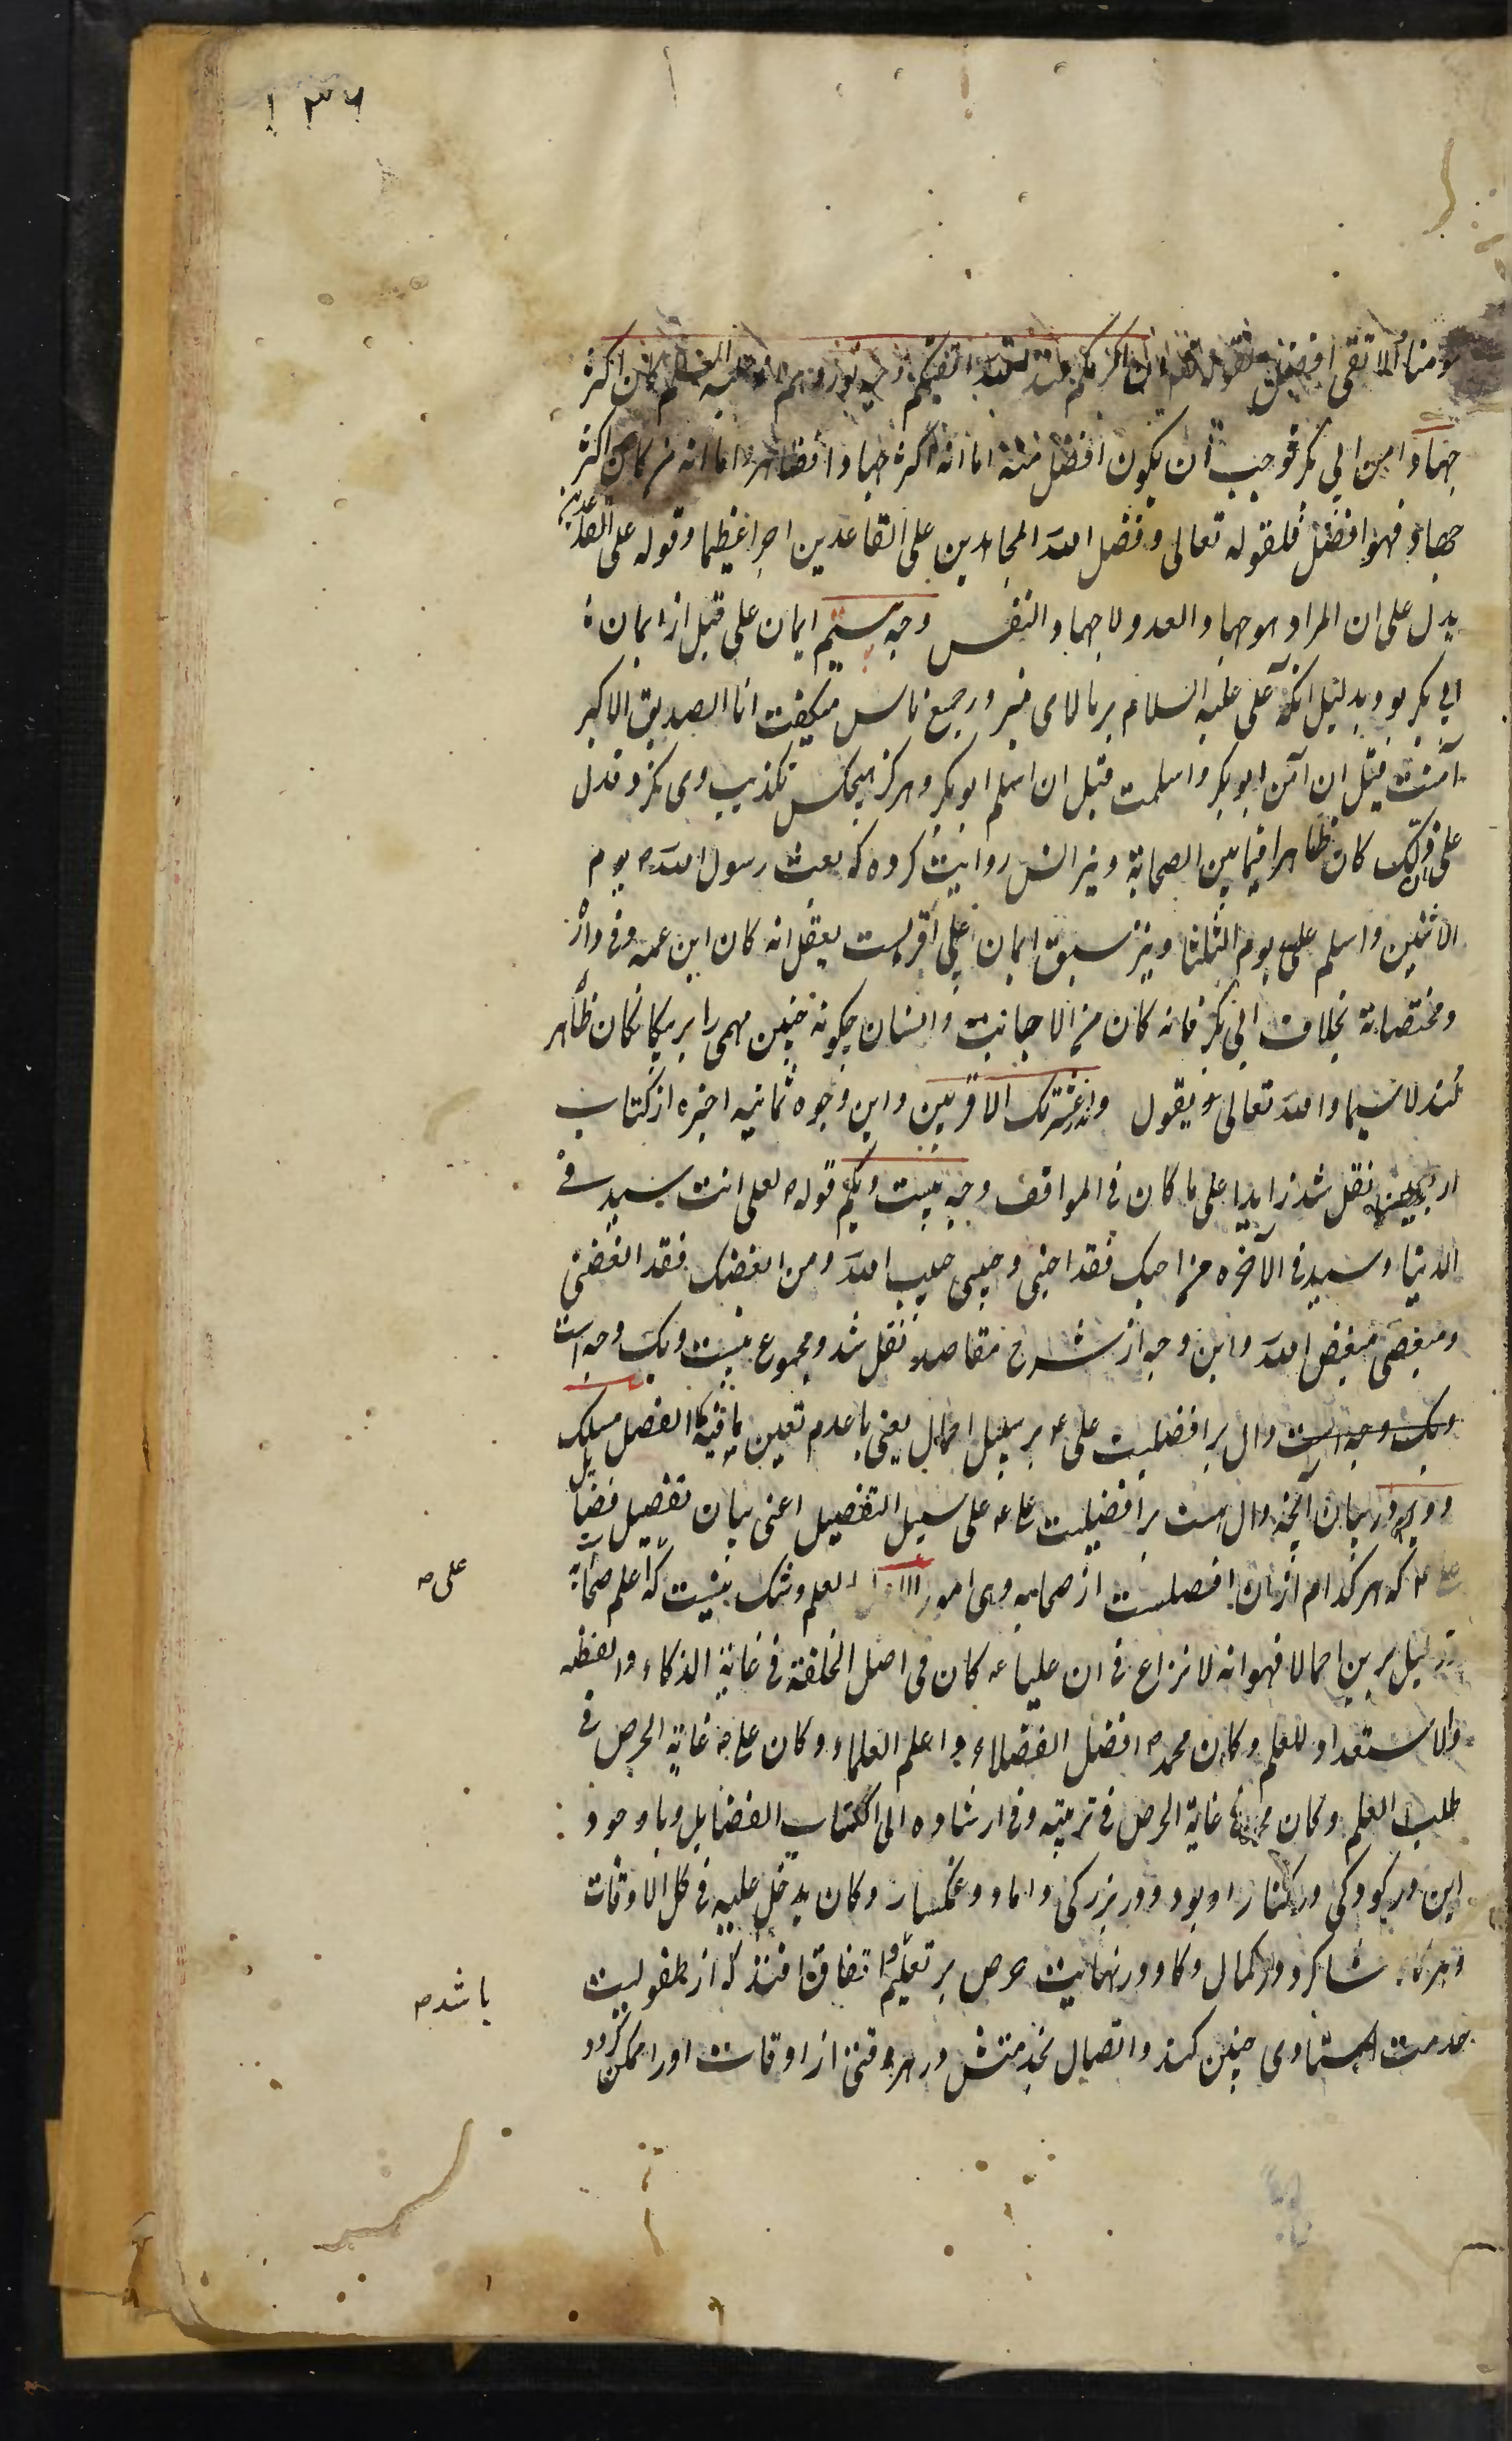 ۱۳۶
مومنا الاتقی افضل لقوله تعالی ان اکرمکم عند الله اتقیکم وجه نوزدهم علی علیه السلم کان اکثر
جهادا من ابی بکر فوجب ان یکون افضل منه اما انه اکثر جهادا فظاهر و اما انه من کان اکثر
جهادا فهو افضل فلقوله تعالی و فضل الله المجاهدین علی القاعدین اجرا عظیما و قوله علی القاعدین
یدل علی ان المراد هو جهاد العدو لا جهاد النفس وجه بیستم ایمان علی قبل از ایمان
ابی بکر بود بدلیل انکه علی علیه السلام بر بالای منبر در جمع ناس میکفت انا الصدیق الاکبر
آمنت قبل ان آمن ابو بکر و اسلمت قبل ان اسلم ابو بکر و هرکز هیچکس تکذیب وی نکرد فدل
علی ان ذلک کان ظاهرا فیما بین الصحابة و نیز انس روایت کرده که بعث رسول الله ص یوم
الاثنین و اسلم علی یوم الثلثا و نیز سبق ایمان علی اقربست بعقل انه کان ابن عمه و فی داره
و مختصا به بخلاف ابی بکر فانه کان من الاجانب و انسان چکونه چنین مهمی را بر بیکانکان ظاهر
کند لا سیما و الله تعالی یقول و انذر عشیرتک الاقربین و این وجوه ثمانیه اخیره از کتاب
اربعین نقل شد زایدا علی ما کان فی المواقف وجه بیست و یکم قوله ص لعلی انت سید فی
الدنیا و سید فی الآخره من احبک فقد احبنی و حبیبی حبیب الله و من ابغضک فقد ابغضنی
و مبغضی مبغض الله و این وجه از شرح مقاصد نقل شد و مجموع بیست و یک وجه است
و یک وجه است دال بر افضلیت علی ع بر سبیل اجمال یعنی با عدم تعین ما فیه الفضل مسلک
دویم در بیان آنچه دال است بر افضلیت علی ع علی سبیل التفصیل اعنی بیان تفصیل فضایل
علی ع که هر کدام از ان افضلیت از صحابه وی امور الاول العلم و شک نیست که اعلم صحابة
دلیل برین اجمالا فهو انه لا نزاع فی ان علیا ع کان فی اصل الخلقة فی غایة الذکاء و الفطنه
و الاستعداد للعلم و کان محمد ص افضل الفضلاء و اعلم العلماء و کان علی ع غایة الحرص فی
طلب العلم و کان محمد فی غایة الحرص فی تربیته و فی ارشاده الی اکتساب الفضایل و با وجود
این در کودکی در کنار او بود و در بزرکی داماد و غمکسار و کان یدخل علیه فی کل الاوقات
و هرکاه شاکرد در کمال ذکا و در نهایت حرص بر تعلم و اتفاق افتد که از طفولیت
خدمت استادی چنین کند و اتصال بخدمتش در هر وقتی از اوقات او را ممکن کردد
علی ص
باشد ص